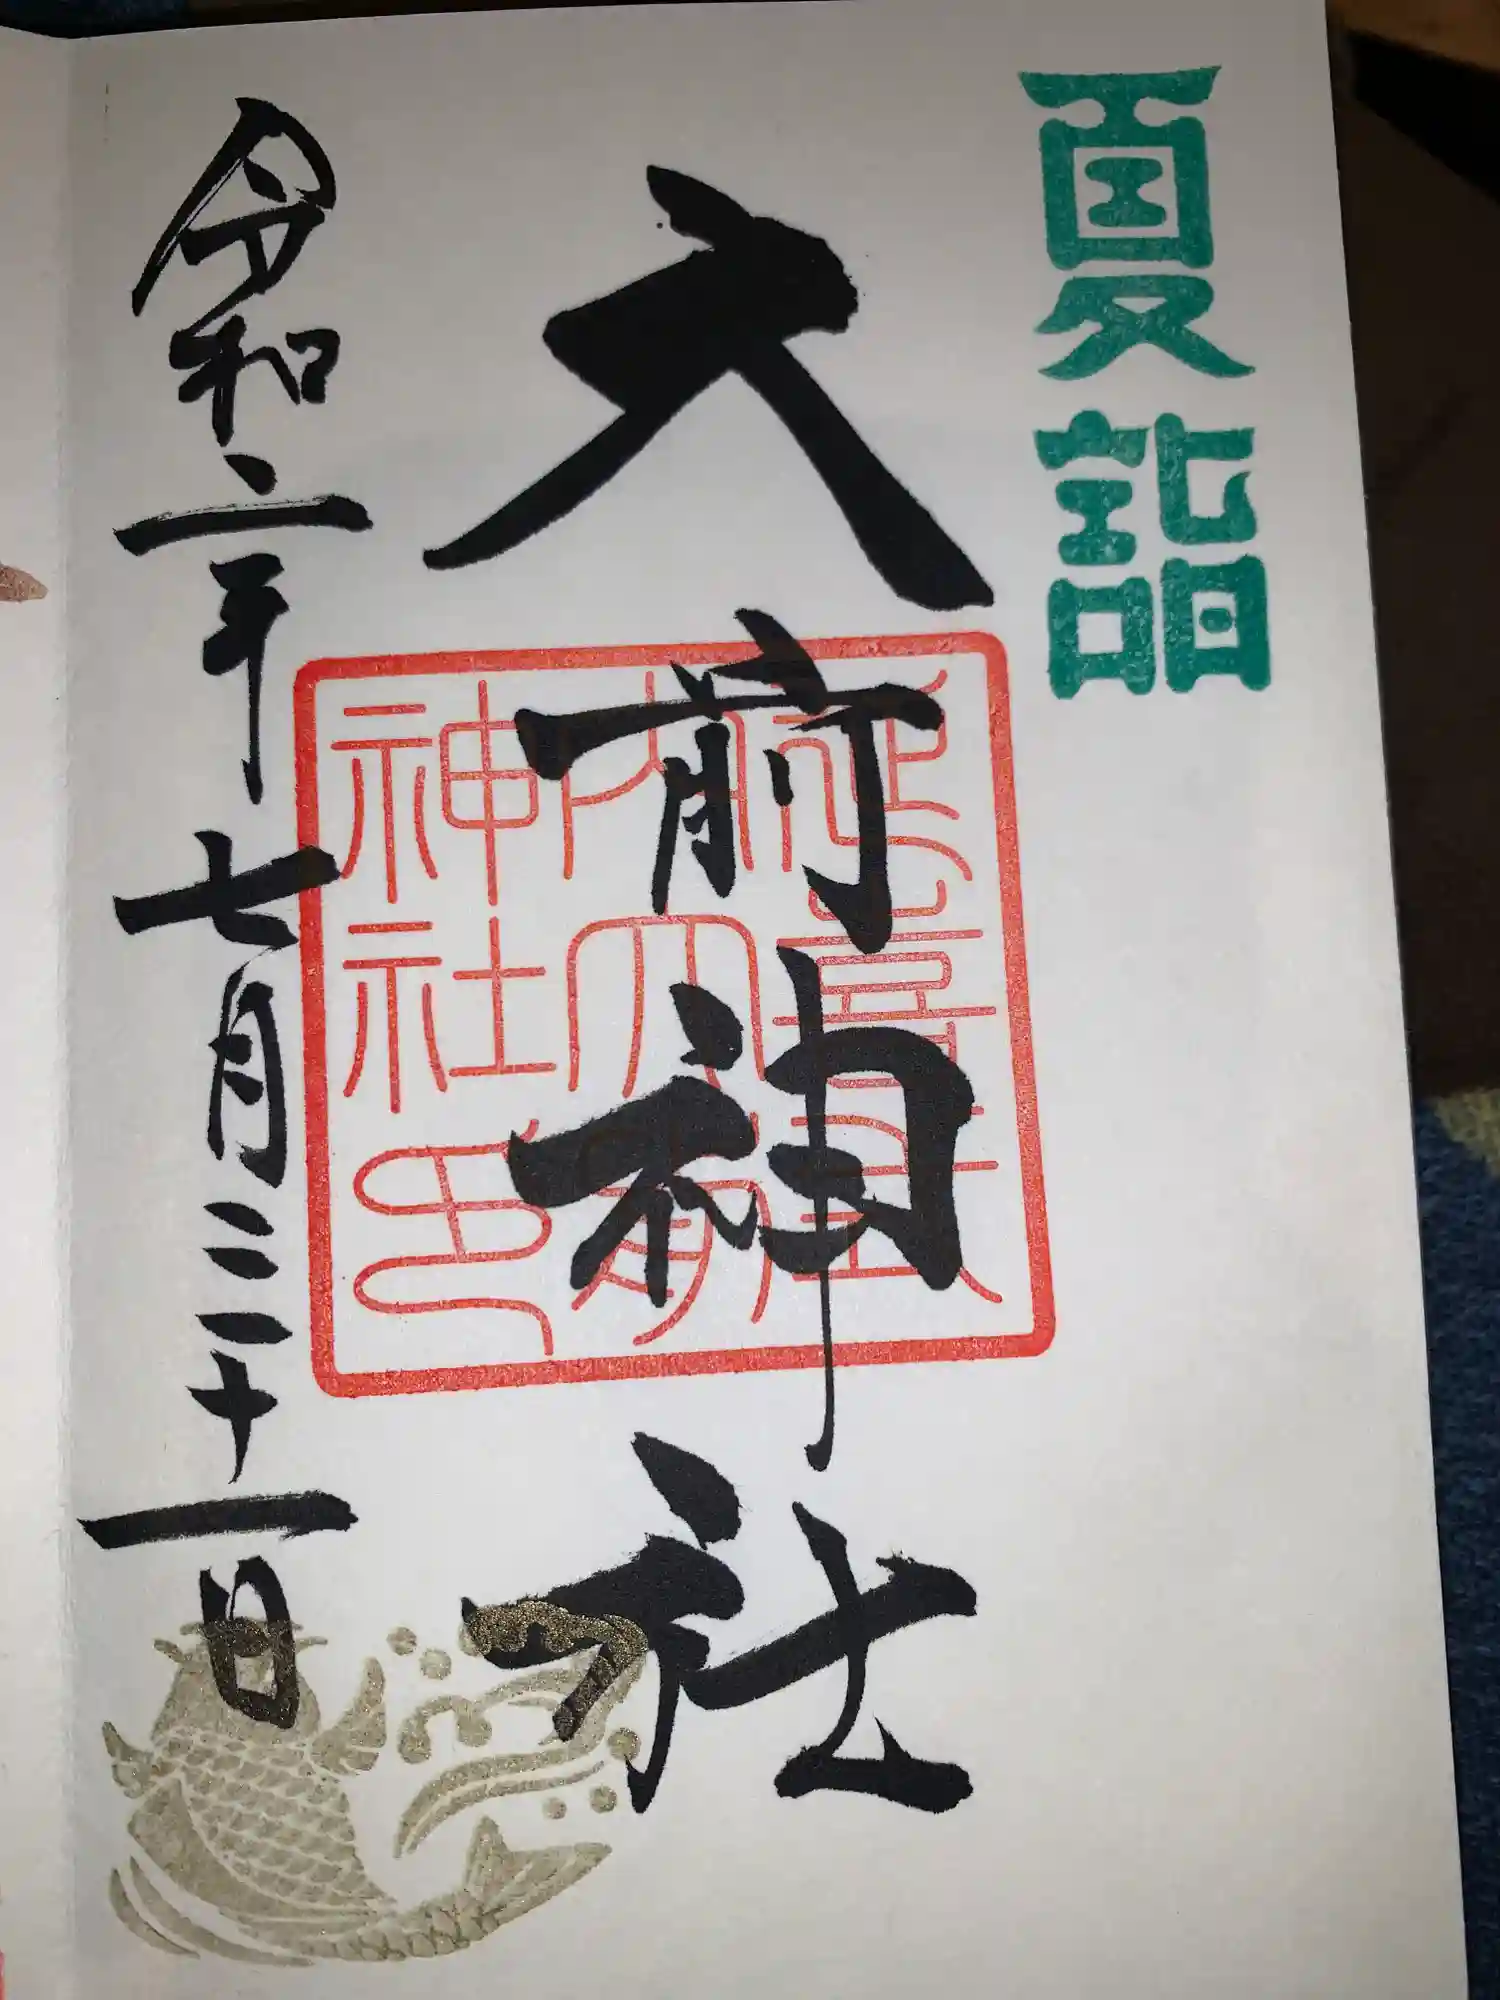 夏詣
大前神社
延喜式内大前神社印
令和二年七月三十一日